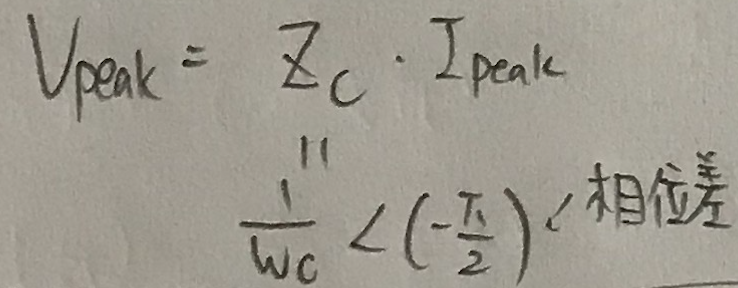 Vpeak = Zc · Ipeak
"
1/wc < (-π/2) ↙ 相位差